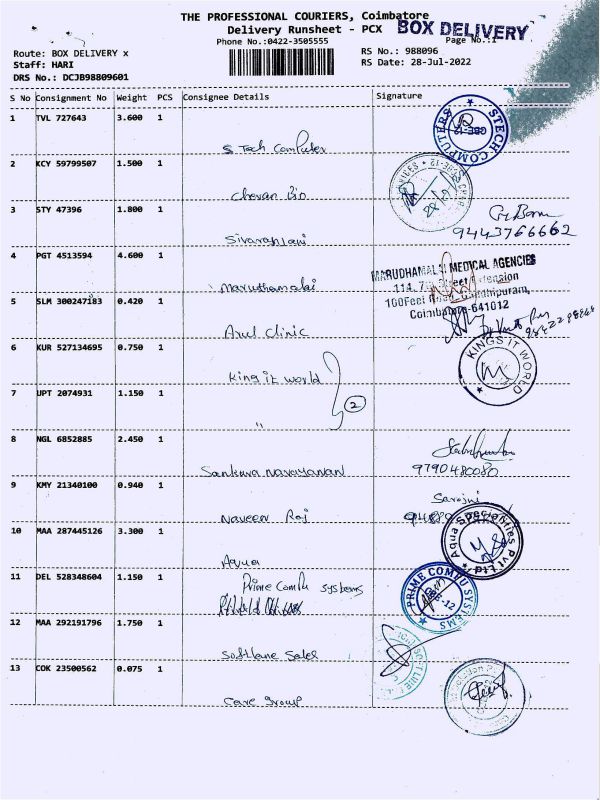 THE PROFESSIONAL COURIERS, Coimbatore
Delivery Runsheet - PCX BOX DELIVERY
Phone No.:0422-3505555 Page No.:1
Route: BOX DELIVERY x RS No.: 988096
Staff: HARI RS Date: 28-Jul-2022
DRS No.: DCJB98809601
S No Consignment No Weight PCS Consignee Details Signature
1 TVL 727643 3.600 1
S Tech Computer
STECH COMPUTERS CBE-12
2 KCY 59799507 1.500 1
Cheran Bio
3 STY 47396 1.800 1
Sivaranjani
9443766662
4 PGT 4513594 4.600 1
Maruthamalai
MARUDHAMALAI MEDICAL AGENCIES
114, 7th Street Extension
100Feet Road, Gandhipuram,
Coimbatore-641012
5 SLM 300247183 0.420 1
Arul Clinic
6 KUR 527134695 0.750 1
King it world
KINGS IT WORLD
7 UPT 2074931 1.150 1
" 2
8 NGL 6852885 2.450 1
Sankara Narayanan 9790480080
9 KMY 21340100 0.940 1
Sarojni
Naveen Raj
10 MAA 287445126 3.300 1
Aqua
Aqua Specialties Pvt Ltd
11 DEL 528348604 1.150 1
Prime Compu Systems
PRIME COMPU SYSTEMS
12 MAA 292191796 1.750 1
Softlane Sales
13 COK 23500562 0.075 1
Care group